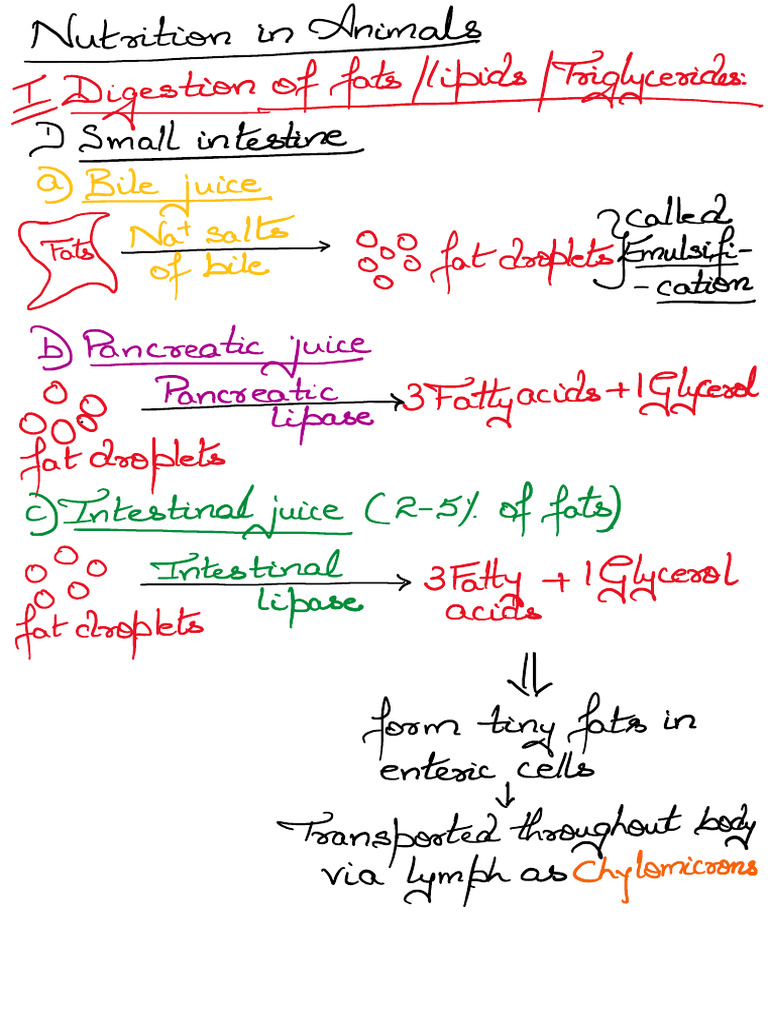 Nutrition in Animals
I Digestion of fats/lipids/Triglycerides:
1) Small intestine
a) Bile juice
Fats
Na+ salts
of bile
fat droplets
called
Emulsifi-
-cation
b) Pancreatic juice
Pancreatic
lipase
3 Fatty acids + 1 Glycerol
fat droplets
c) Intestinal juice (2-5% of fats)
Intestinal
lipase
3 Fatty
acids
+ 1 Glycerol
fat droplets
form tiny fats in
enteric cells
Transported throughout body
via lymph as Chylomicrons